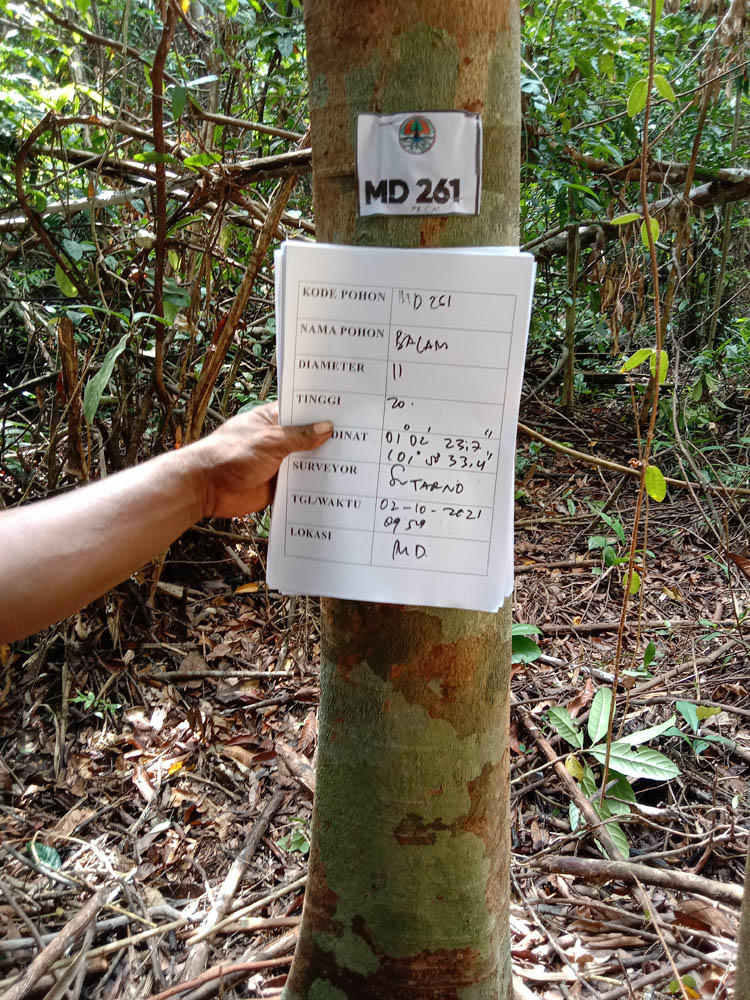 MD 261
KODE POHON MD 261
NAMA POHON BALAM
DIAMETER 11
TINGGI 20.
DINAT 01° 02' 23.7"
SURVEYOR SUTARNO
TGL/WAKTU 02-10-2021
09 59
LOKASI MD